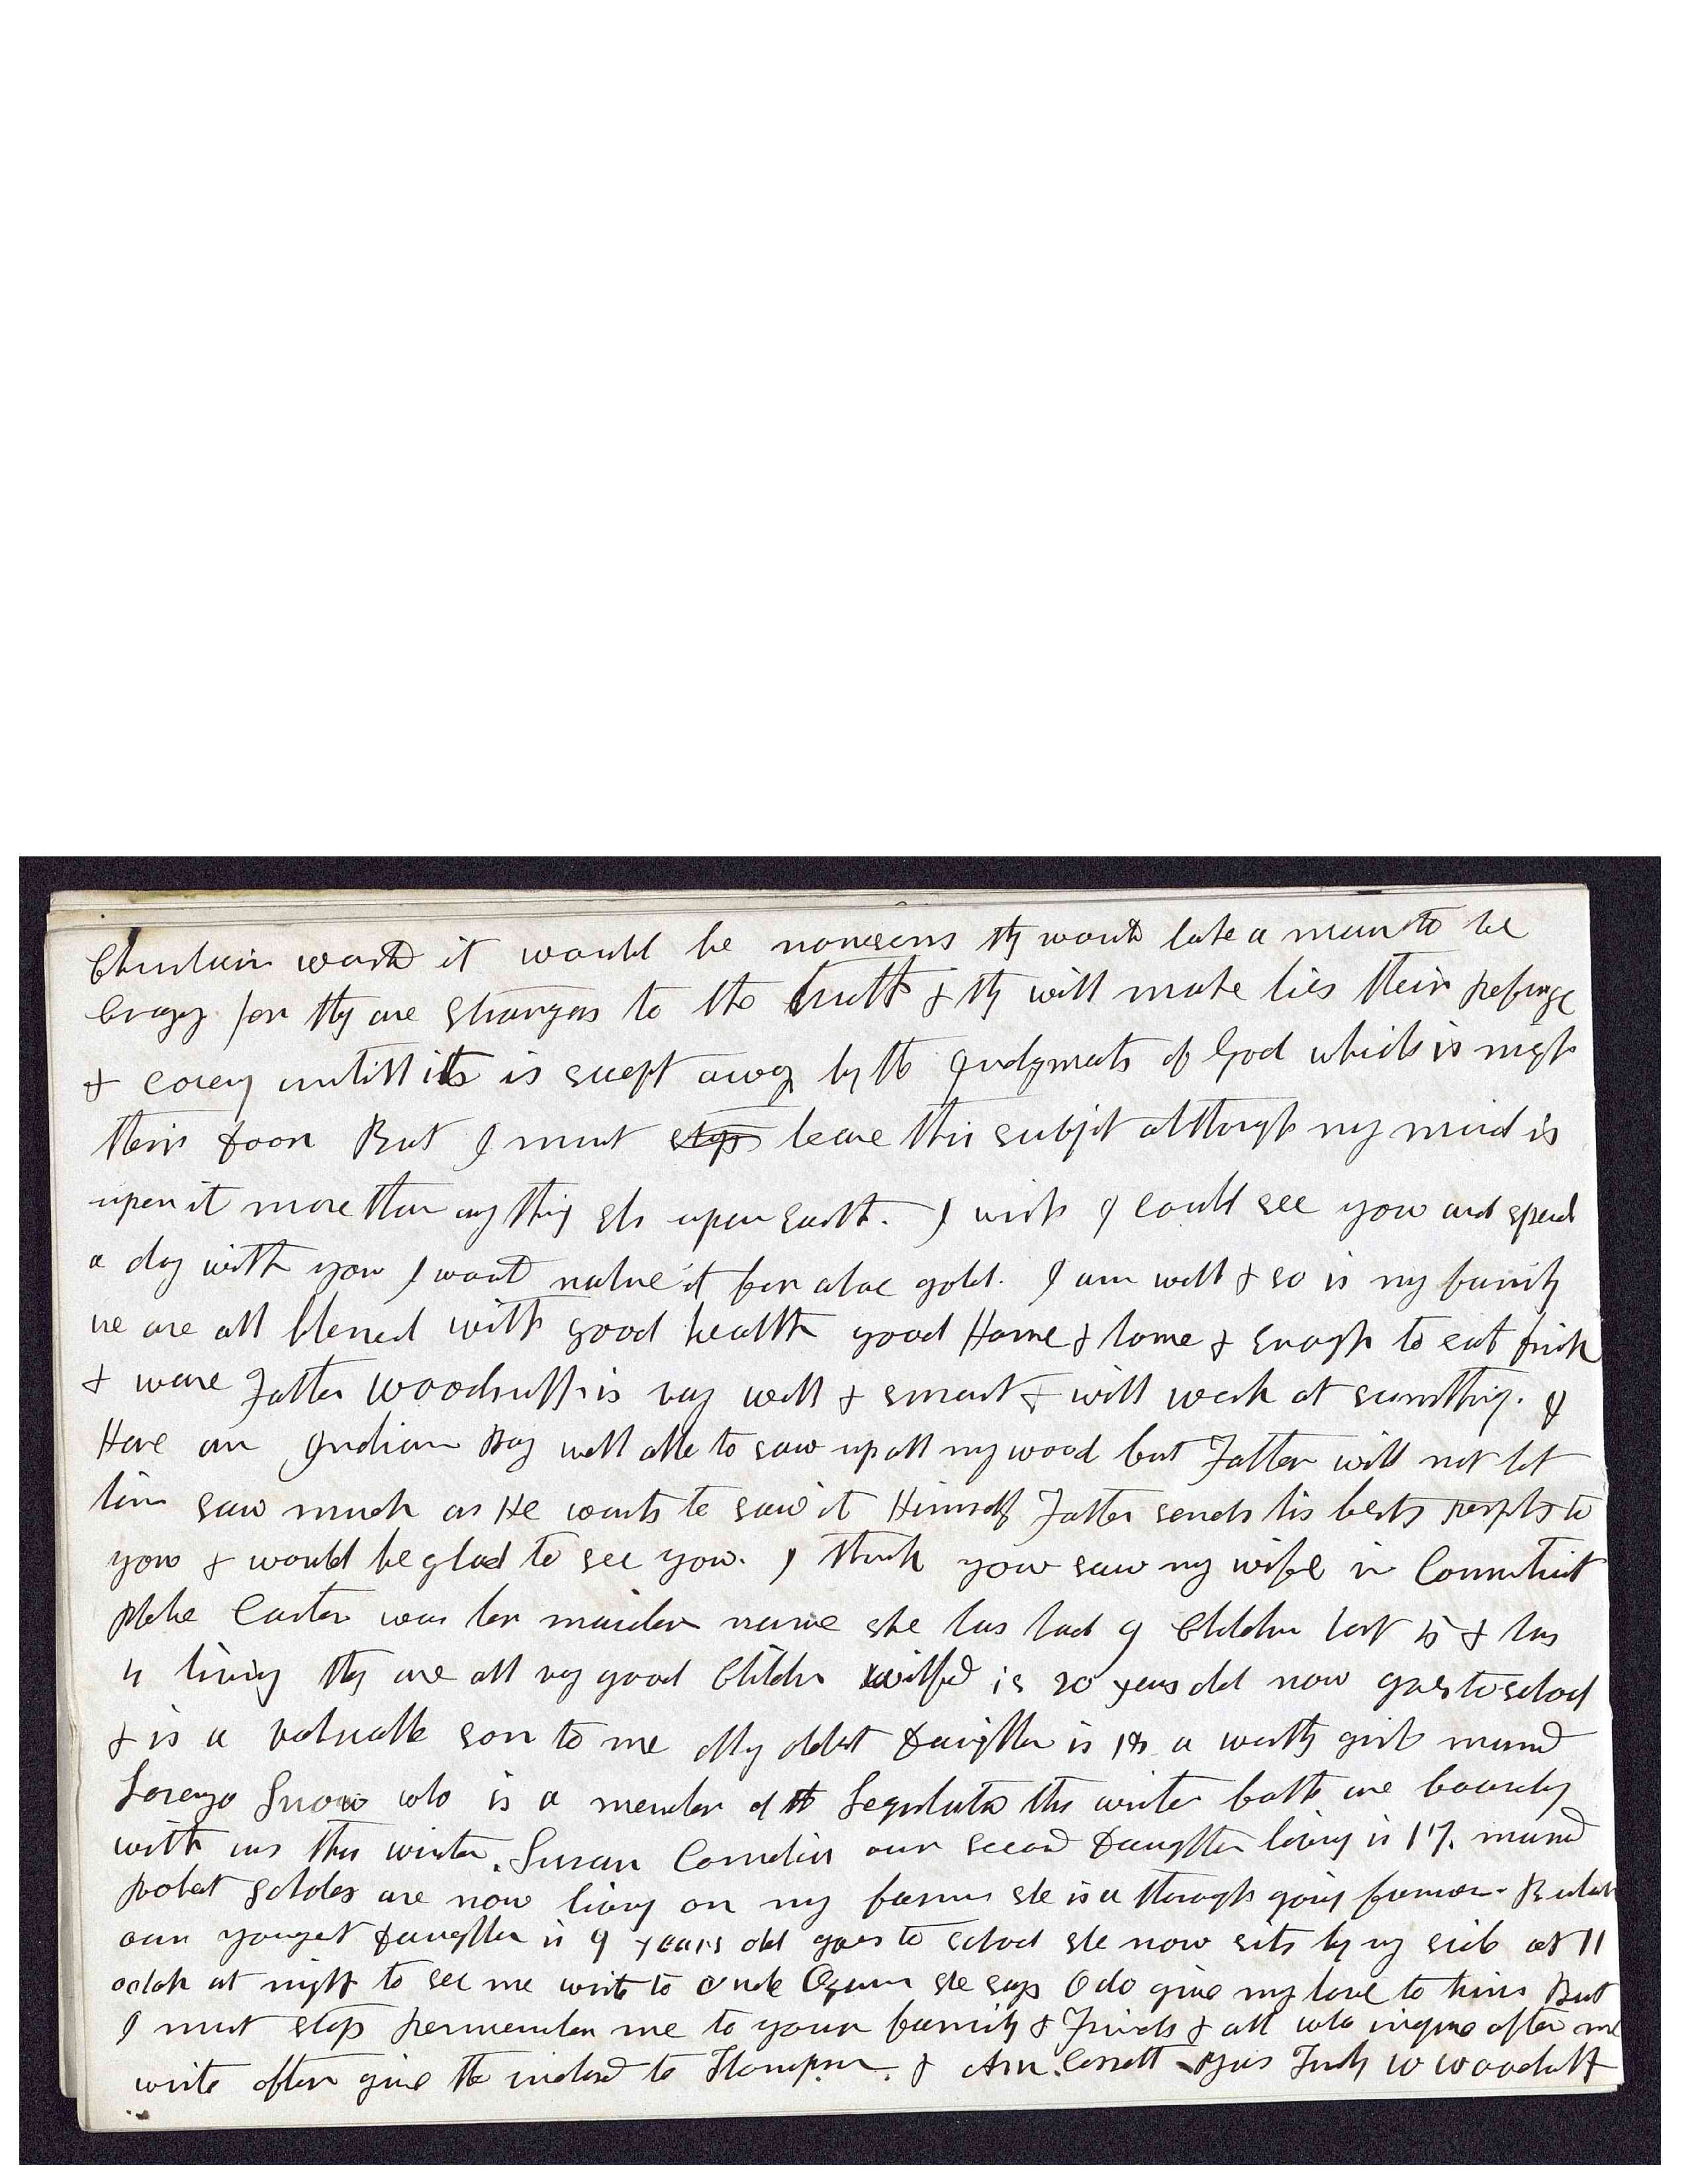 Christian world it would be nonesens they would take a man to be
Crazy for they are strangers to the truth & they will make lies their refuge
& covering untill it is swept away by the Judgments of God which is nigh
their door But I must stop leave this subjet although my mind is
upon it more than any thing els upon Earth. I wish I could see you and spend
a day with you I would value it far above gold. I am well & so is my family
we are all blessed with good health good Home & Enough to eat drink
& ware Father Woodruff is very well & smart & will work at sumthing. I
Have an Indian Boy well able to saw up all my wood but Father will not let
him saw much as He wants to saw it Himself Father sends his bests respects to
you & would be glad to see you. I think you saw my wife in Connecticut
Phebe Carter was her maiden name she has had 9 Children lost 5 & has
4 living they are all very good Children Wilford is 20 years old now goes to school
& is a valuable son to me My oldest Daughter is 18 a worthy girl married
Lorenzo Snow who is a member of the Legislature this winter both are boarding
with us this winter. Susan Cornelia our second Daughter living is 17. married
Robert Scholes are now living on my farm she is a through going farmer. Bulah
our youngest Daughter is 9 years old goes to school she now sits by my side at 11
oclok at night to see me write to Uncle Ozem she says O do give my love to him But
I must stop Remember me to your family & Friends & all who inquire after me
write often give the inclosed to Thompson. & Am. Cossett Yours Truly W Woodruff